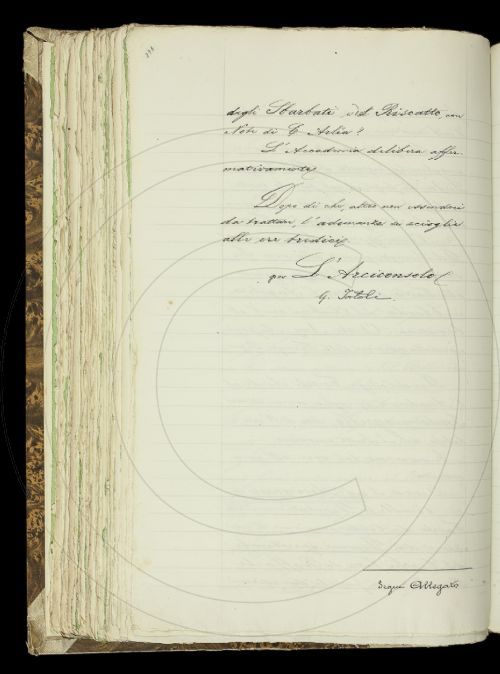 degli Sbarbati, ed il Riscatto, con
Note di C. Arlìa?
L'Accademia delibera affer-
mativamente.
Dopo di che, altro non essendovi
da trattare, l'adunanza si scioglie
alle ore tredici.
per L'Arciconsolo
G. Tortoli.
Segue Allegato